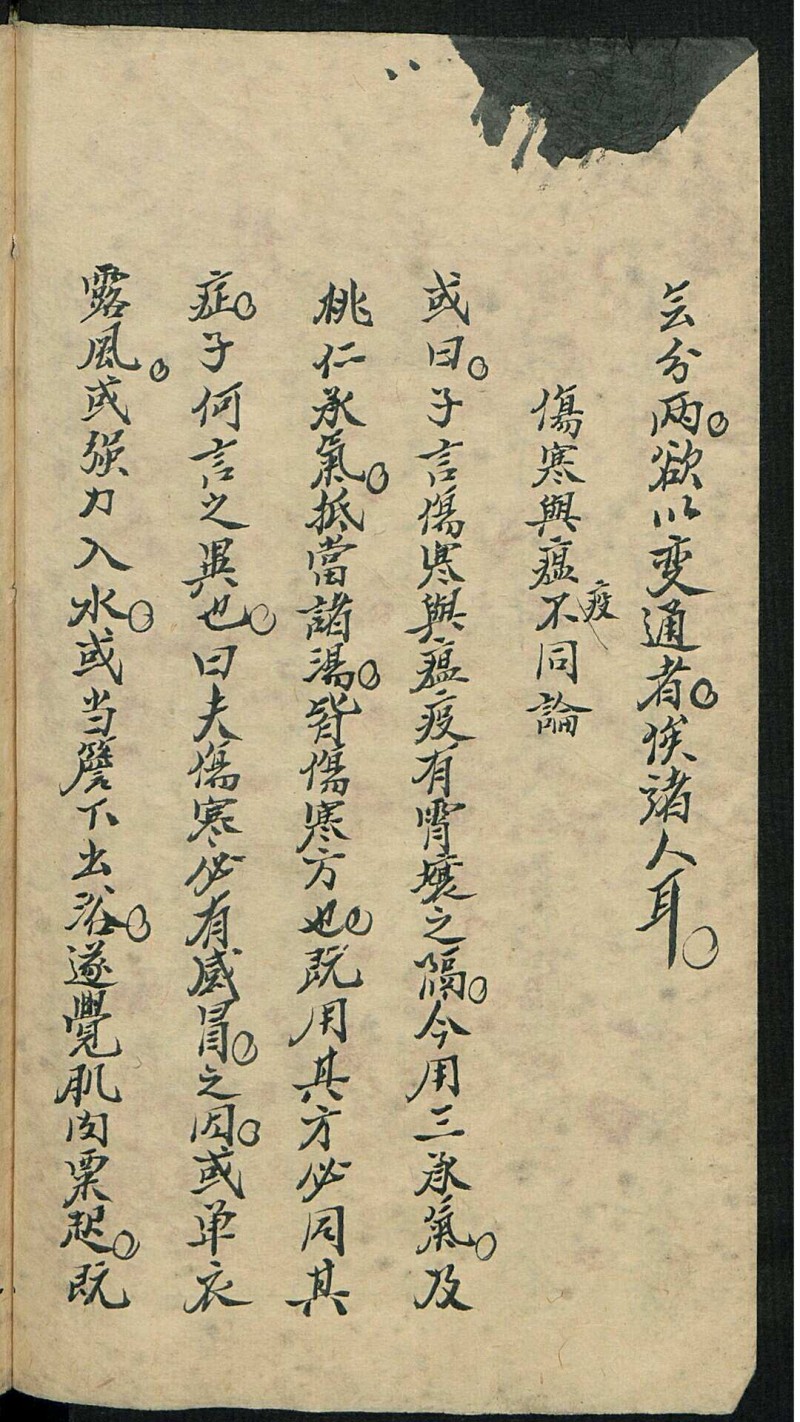 云分两。欲以变通者。俟诸人耳。
傷寒與瘟疫不同論
或曰。子言傷寒與瘟疫有霄壤之隔。今用三承氣。及
桃仁承氣。抵當諸湯。皆傷寒方也。既用其方必同其
症。子何言之異也。曰夫傷寒必有感冒。之因。或单衣
露風。或强力入水。或当簷下出浴。遂覺肌肉粟起。既